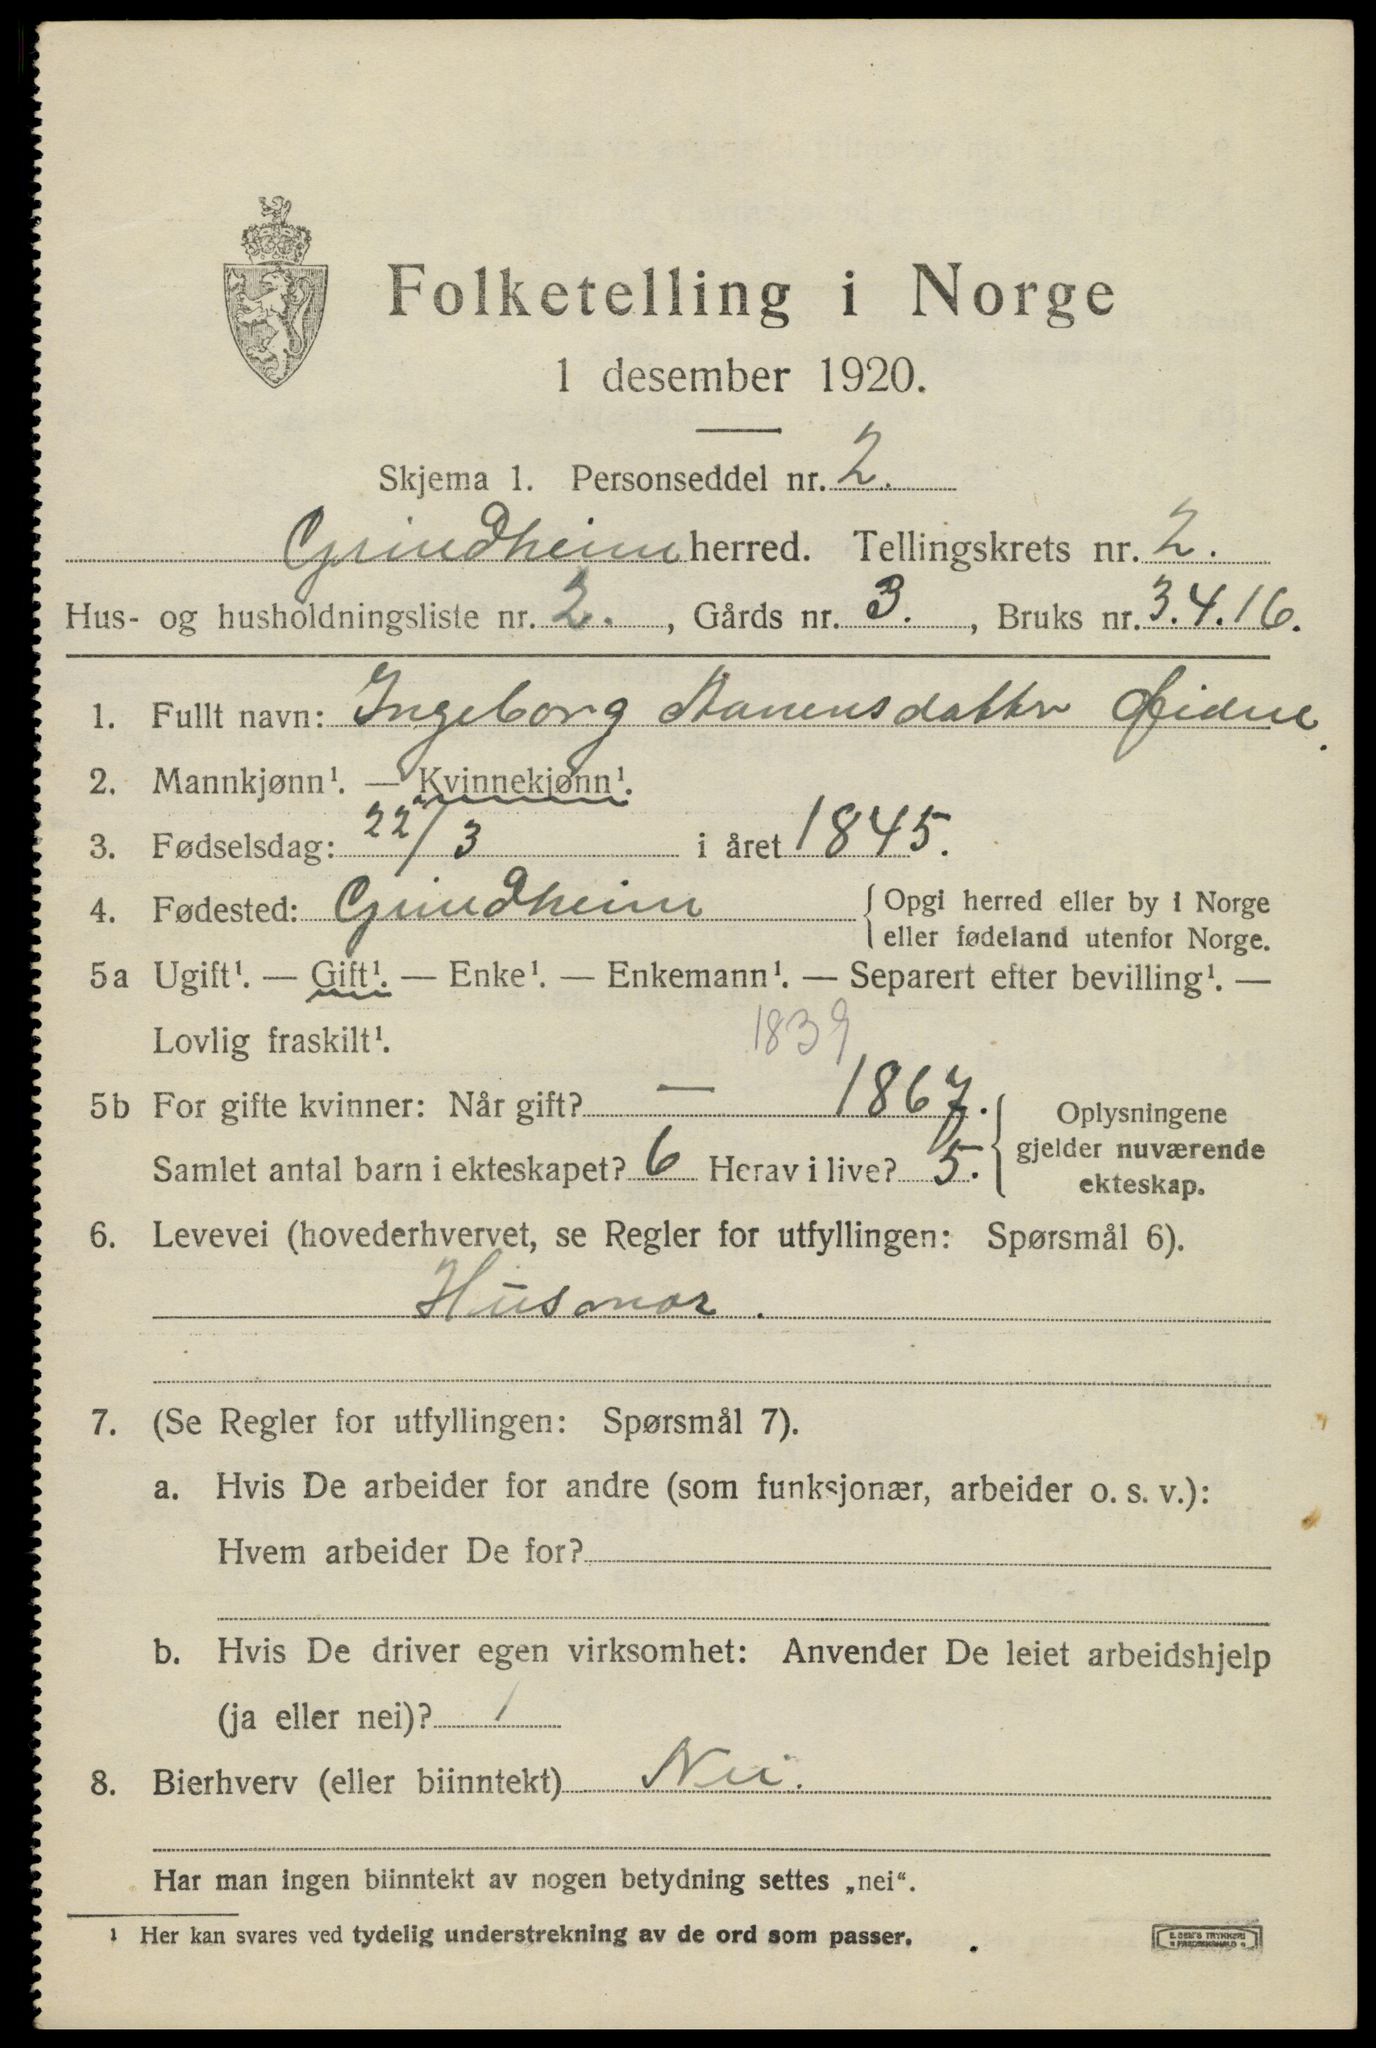 Folketelling i Norge
1 desember 1920.
Skjema 1. Personseddel nr. 2.
Grindheim herred. Tellingskrets nr. 2.
Hus- og husholdningsliste nr. 2. , Gårds nr. 3. , Bruks nr. 3.4.16.
1. Fullt navn: Ingeborg Aanensdatter Øidne.
2. Mannkjønn¹. — Kvinnekjønn¹.
3. Fødselsdag: 22/3 i året 1845.
4. Fødested: Grindheim { Opgi herred eller by i Norge
eller fødeland utenfor Norge.
5a Ugift¹. — Gift¹. — Enke¹. — Enkemann¹. — Separert efter bevilling¹. —
Lovlig fraskilt¹.
1839
5b For gifte kvinner: Når gift? — 1867.
Samlet antal barn i ekteskapet? 6 Herav i live? 5.
Oplysningene
gjelder nuværende
ekteskap.
6. Levevei (hovederhvervet, se Regler for utfyllingen: Spørsmål 6).
Husmor.
7. (Se Regler for utfyllingen: Spørsmål 7).
a. Hvis De arbeider for andre (som funksjonær, arbeider o. s. v.):
Hvem arbeider De for?
b. Hvis De driver egen virksomhet: Anvender De leiet arbeidshjelp
(ja eller nei)? /
8. Bierhverv (eller biinntekt) Nei.
Har man ingen biinntekt av nogen betydning settes „nei“.
¹ Her kan svares ved tydelig understrekning av de ord som passer.